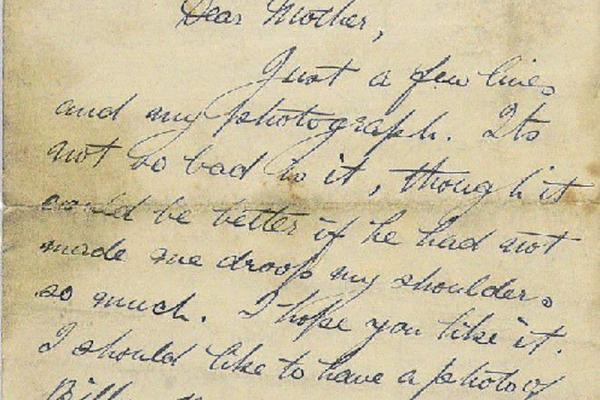 Dear Mother,
Just a few lines
and my photograph. Its
not so bad is it, though it
could be better if he had not
made me droop my shoulders
so much. I hope you like it.
I should like to have a photo of
Billy